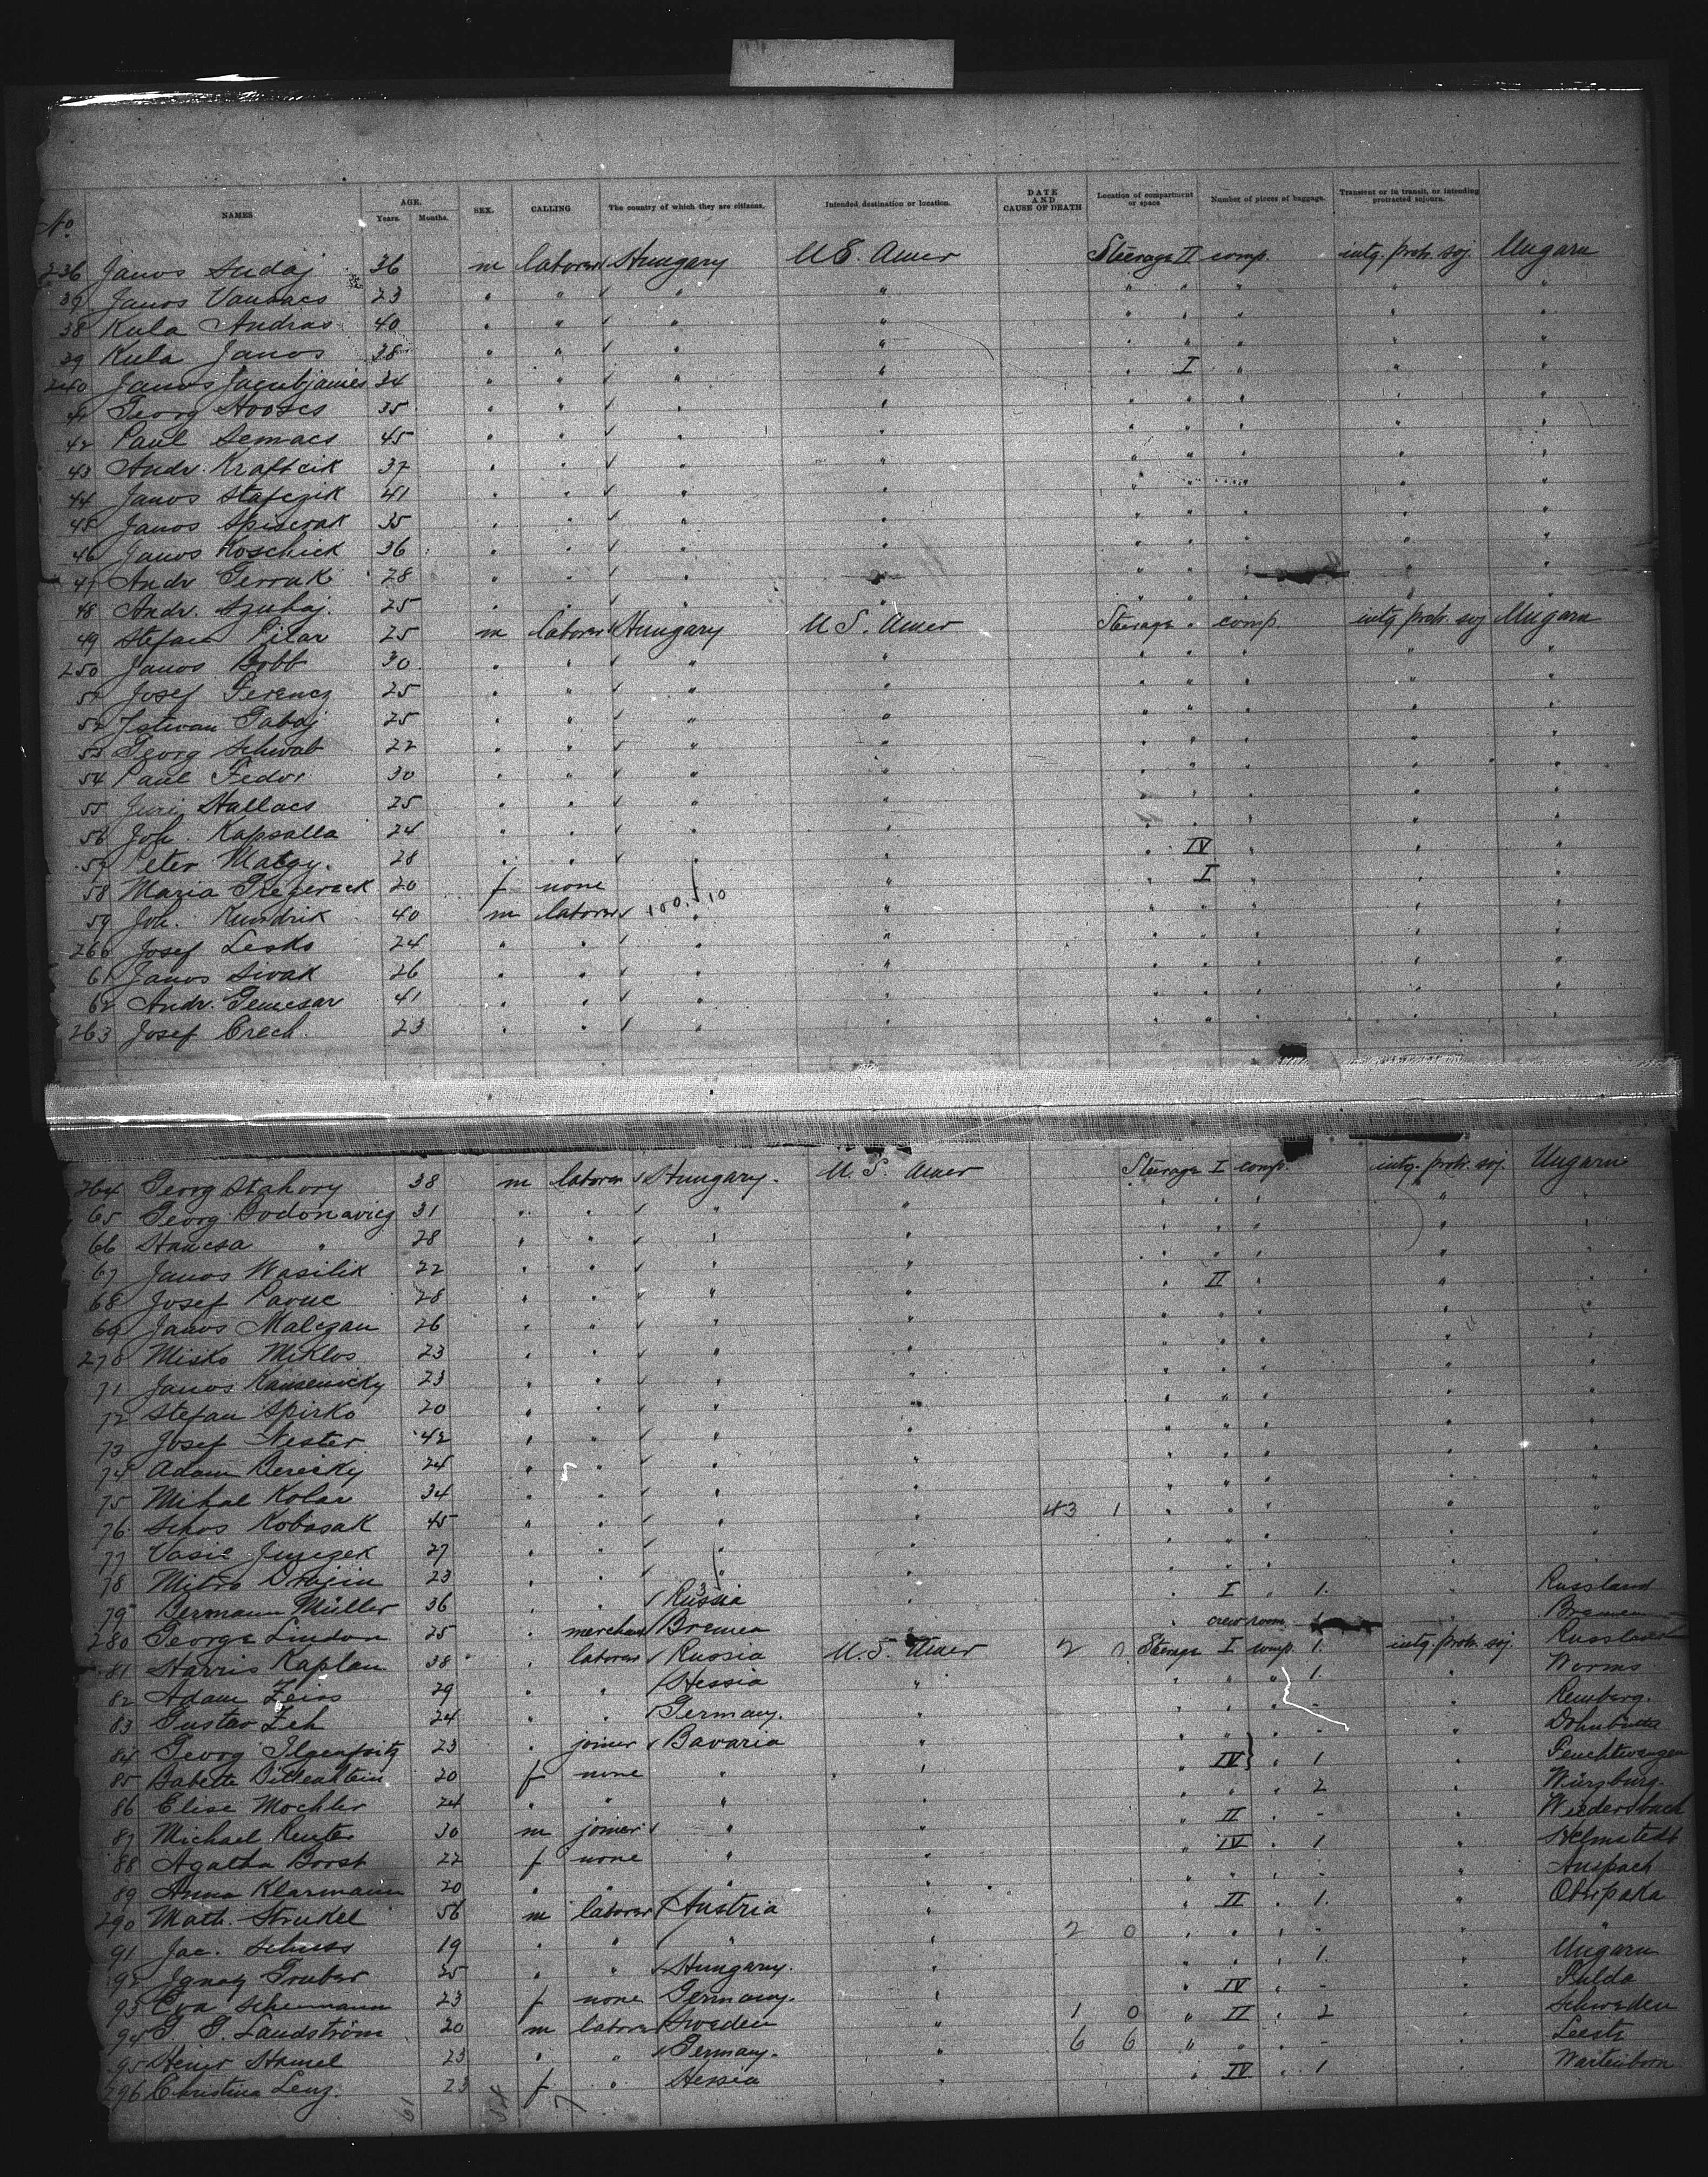 No. NAMES AGE. Years. Months. SEX. CALLING The country of which they are citizens. Intended destination or location. DATE AND CAUSE OF DEATH Location of compartment or space Number of pieces of baggage. Transient or in transit, or intending protracted sojourn.
236 Janos Sudaj 36 m laborer Hungary U.S. Amer Steerage II comp. intg. protr. soj. Ungarn
Janos 23 " " " " " " " " "
38 Kula Andras 40 " " " " " " " " "
39 Kula Janos 38 " " " " " " " " "
240 Janos 34 " " " " " I " " "
41 Georg 35 " " " " " " " " "
42 Paul Semacs 45 " " " " " " " " "
43 Andr. Kraftcik 37 " " " " " " " " "
44 Janos Stafczik 41 " " " " " " " " "
45 Janos 35 " " " " " " " " "
46 Janos Koschick 36 " " " " " " " " "
47 Andr 28 " " " " " " " " "
48 Andr. Szuhaj. 25 " " " " " " " " "
49 Stefan Pilar 25 m laborer Hungary U.S. Amer Steerage " comp. intg protr. soj Ungarn
250 Janos Bobb 30 " " " " " " " " "
51 Josef Ferencz 25 " " " " " " " " "
52 Istwan Gabaj 25 " " " " " " " " "
53 Georg Schwab 22 " " " " " " " " "
54 Paul Fedor 30 " " " " " " " " "
55 Juri Hallacs 25 " " " " " " " " "
56 Joh. Kapsalla 24 " " " " " " " " "
57 Peter Matgy. 28 " " " " " IV " " "
58 Maria 20 f none " " " I " " "
59 Joh. Kundrik 40 m laborer " " " " " " "
260 Josef Lesko 24 " " " " " " " " "
61 Janos Sivak 26 " " " " " " " " "
62 Andr. Gemesar 41 " " " " " " " " "
263 Josef Crech. 23 " " " " " " " " "
264 Georg Stahory 38 m laborer Hungary. U.S. Amer Steerage I comp. intg. protr. soj. Ungarn
65 Georg Bodonavicz 31 " " " " " " " " "
66 Hancsa " 28 " " " " " " " " "
67 Janos Wasilik 22 " " " " " " " " "
68 Josef Pavuc 28 " " " " " II " " "
69 Janos Malczan 26 " " " " " " " " "
270 Misko Miklos 23 " " " " " " " " "
71 Janos Kamenicky 23 " " " " " " " " "
72 Stefan Spirko 20 " " " " " " " " "
73 Josef Nester 42 " " " " " " " " "
74 Adam Berecky 24 " " " " " " " " "
75 Mihal Kolar 34 " " " " " " " " "
76 Kobasak 45 " " " " 43 1 " " " " "
77 Vasil 27 " " " " " " " " "
78 Mitro 23 " " " " " " " " "
79 Bermann Müller 36 " " Russia " " I " 1. " Russland
280 George Lindon 25 " merchant Bremen " crew room " Bremen
81 Harris Kaplan 38 " laborer Russia U.S. Amer 2 0 Steerage I comp. 1. intg. protr. soj. Russland
82 Adam Zeiss 29 " " Hessia " " " " 1. " Worms
83 Gustav Zeh 24 " " Germany. " " " " - " Remberg.
84 Georg Ilgenfritz 23 " joiner Bavaria " " " " - "
85 Babette 20 f none " " " IV " 1 " Feuchtwangen
86 Elise Mochler 24 " " " " " " " 2 " Würzburg.
87 Michael Reuter 30 m joiner " " " II " - " Wiedersbach
88 Agatha Borst 22 f none " " " IV " 1 " Helmstedt
89 Anna Klarmann 20 " " " " " " " - " Anspach
290 Math. Strukel 56 m laborer Austria " " II " 1. " Oberpaka
91 Jac. Schuss 19 " " " " 2 0 " " " - " "
92 Ignatz Gruber 25 " " Hungary. " " " " 1. " Ungarn
93 Eva Schermann 23 f none Germany. " " IV " - " Fulda
94 G. G. Landström 20 m laborer Sweden " 1 0 " II " 2 " Schweden
95 Heinr Hamel 23 " " Germany. " 6 6 " " " - " Leeste
296 Christina Lenz. 23 f " Hessia " " IV " 1 " Wartenborn